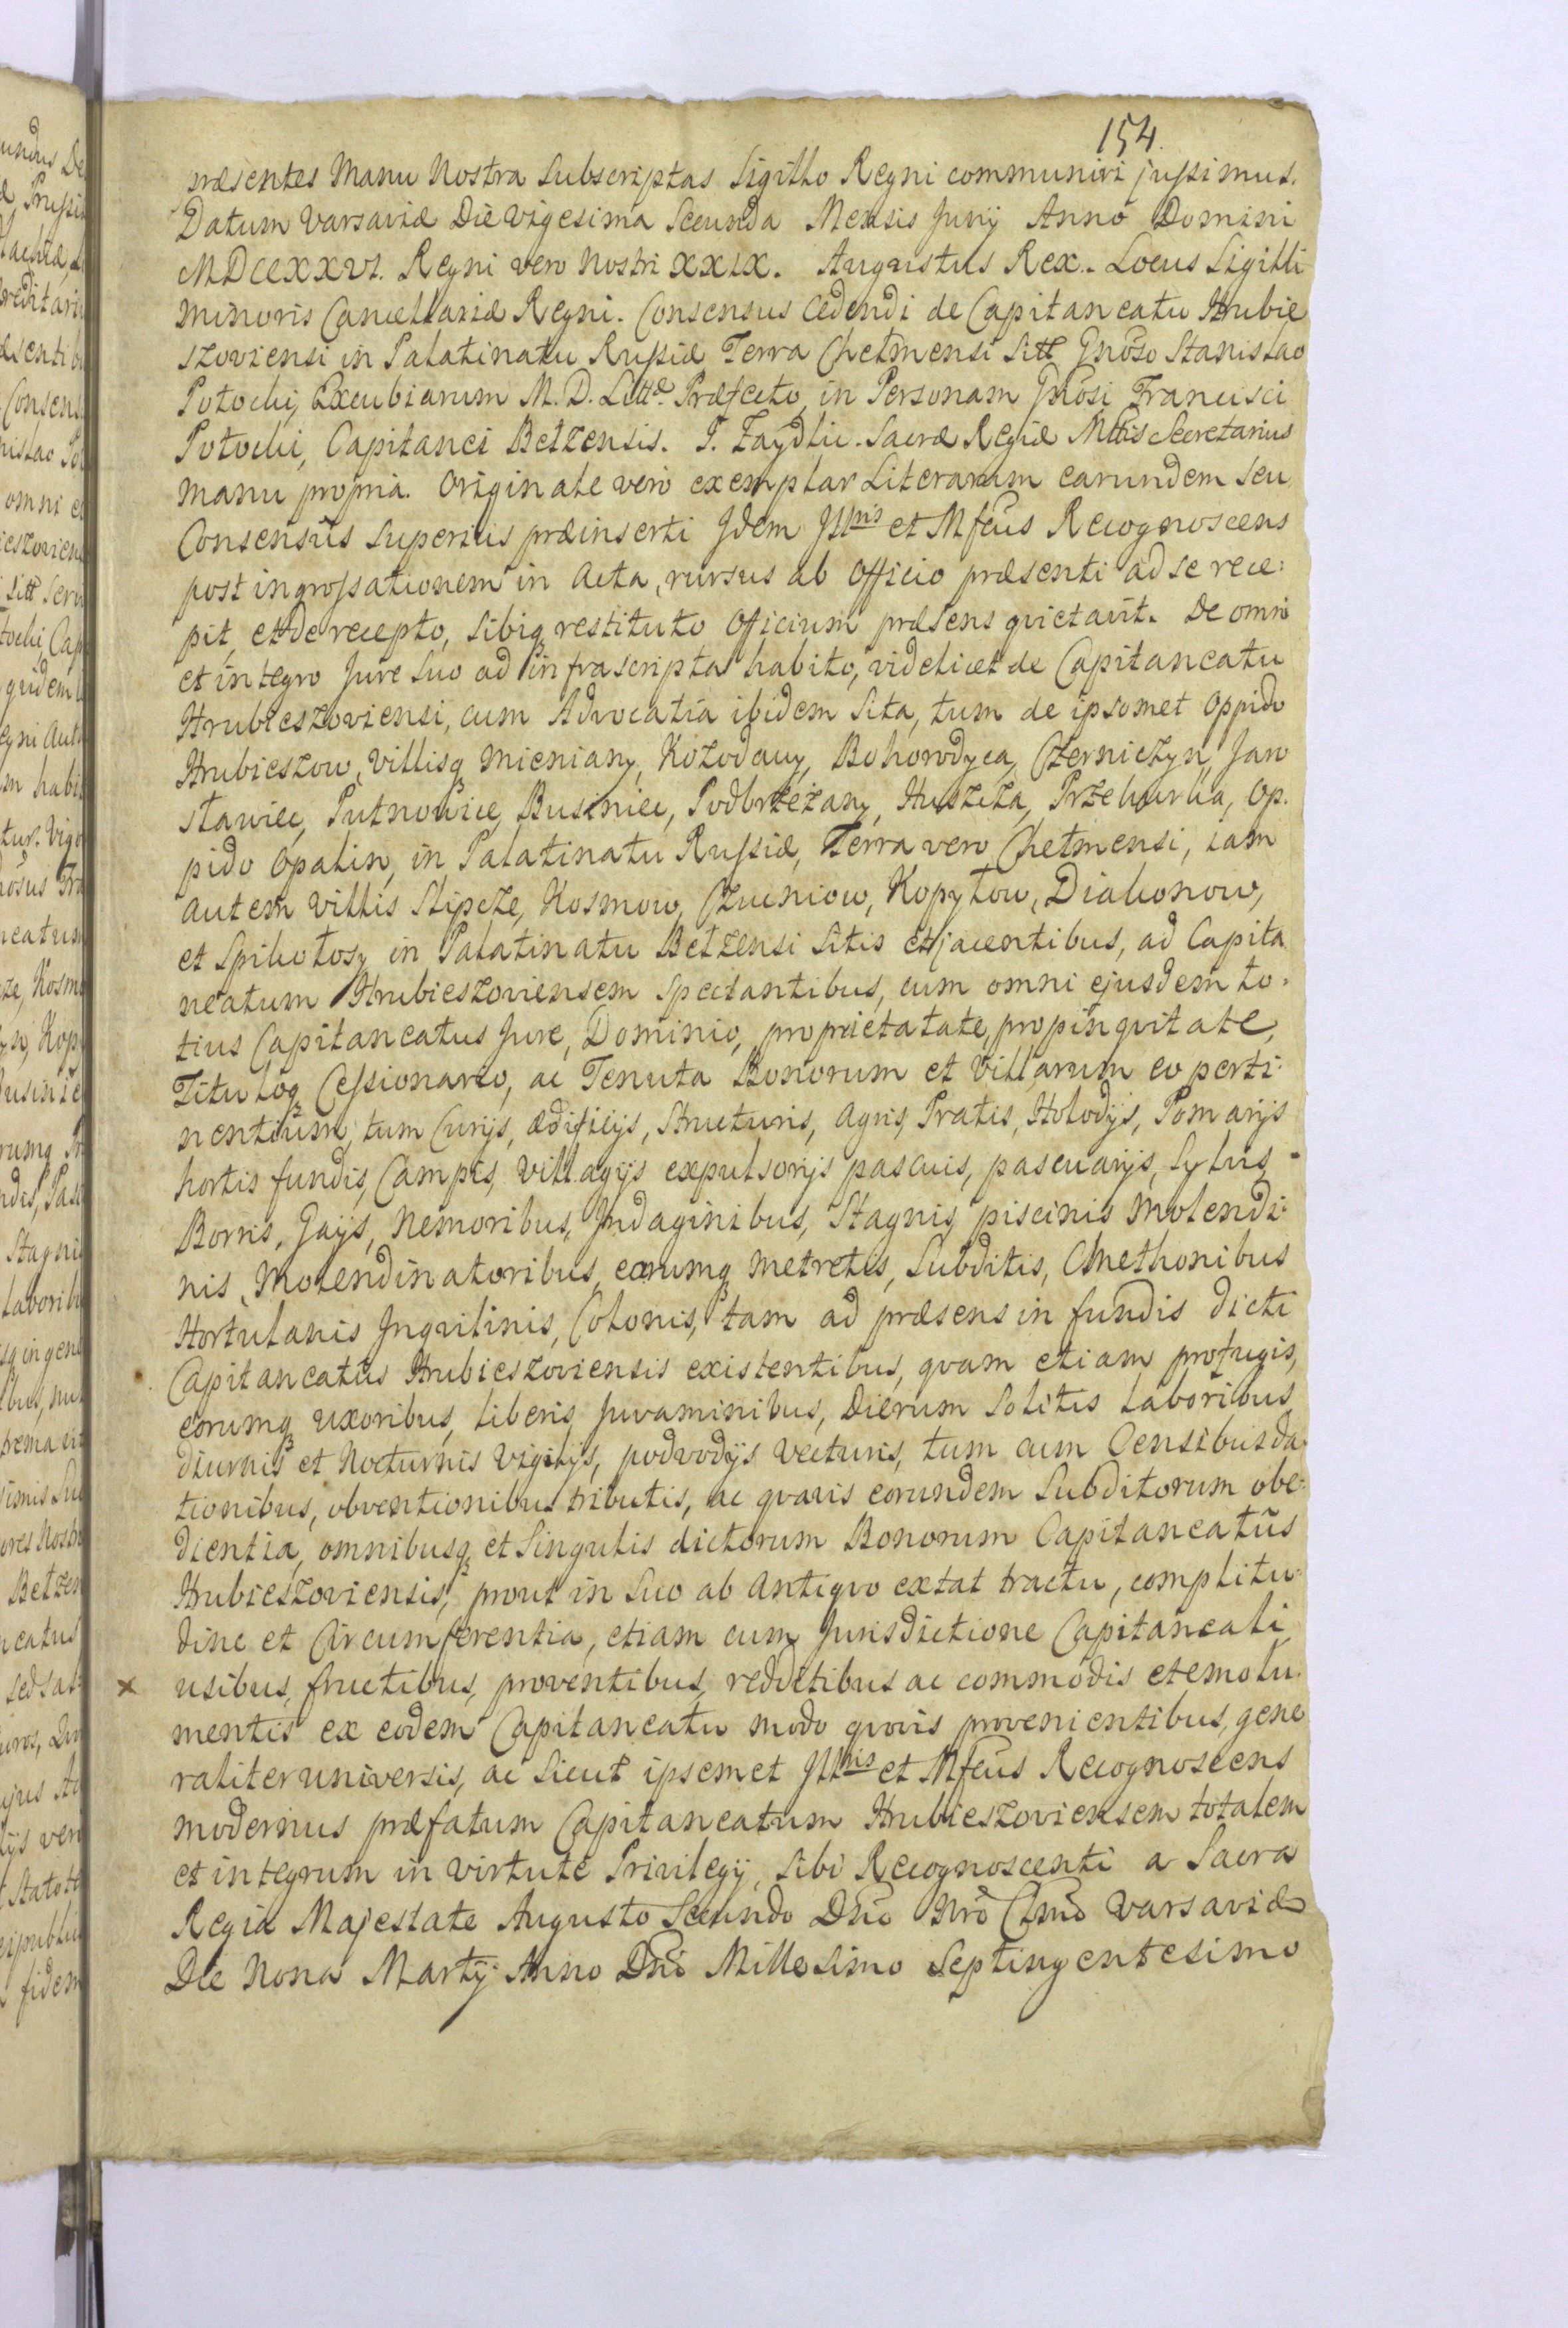 154.
præsentes Manu Nostra Subscriptas Sigillo Regni communiri jussimus.
Datum Varsaviæ Die Vigesima Secunda Mensis Junij Anno Domini
MDCCXXVI. Regni vero Nostri XXIX. Augustus Rex. Locus Sigilli
Minoris Cancellariæ Regni. Consensus Cedendi de Capitaneatu Hrubie
szoviensi in Palatinatu Russiæ Terra Chelmensi Sitt Gnoso Stanislao
Potocki, Excubiarum M. D. Littæ. Præfecto, in Personam Gnosi Francisci
Potocki, Capitanei Belzensis. P. Zaydlic. Sacræ Regiæ Mttis Secretarius
manu propria. Originale vero exemplar Literarum earundem seu
Consensûs Superiûs præinserti Jdem Jllris et Mfcus Recognoscens
post ingrossationem in Acta, rursus ab Officio præsenti ad se rece:
pit, et de recepto, sibiq restituto Officium præsens quietavit. De omni
et integro Jure Suo ad infrascripta habito, videlicet de Capitaneatu
Hrubieszoviensi, cum Advocatia ibidem Sita, tum de ipsomet Oppido
Hrubieszow, Villisq Mieniany, Kozodawy, Bohorodyca, Czerniczyn, Jaro
sławiec, Putnowice, Businiec, Podbrzeżany, Huszcza, Przekurka, Op.
pido Opalin, in Palatinatu Russiæ, Terra vero Chelmensi, tam
autem Villis Slipcze, Kosmow, Czucniow, Kopytow, Diakonow,
et Spikołosy in Palatinatu Belzensi Sitis et jacentibus, ad Capita
neatum Hrubieszoviensem Spectantibus, cum omni ejusdem to:
tius Capitaneatus Jure, Dominio, proprietatate, propinquitate,
Tituloq Cessionario, ac Tenuta Bonorum et Villarum eo perti:
nentium, tum Curijs, ædificijs, Structuris, agris, Pratis, Holodijs, Pomarijs
hortis fundis, Campis, Villagijs expulsorijs pascuis, pascuarijs, Sylvis
Borris, Gajis, Nemoribus, Jndaginibus, Stagnis, piscinis Molendi:
nis, Molendinatoribus, earumq metretis, Subditis, Cmethonibus
Hortulanis Jnquilinis, Colonis, tam ad præsens in fundis dicti
Capitaneatus Hrubieszoviensis existentibus, quam etiam profugis,
eorumq uxoribus, liberis, Juvaminibus, Dierum Solitis Laboribus,
diurnis et Nocturnis Vigilijs, podvodijs vecturis, tum cum Censibus da
tionibus, obventionibus tributis, ac quavis eorundem Subditorum obe:
dientia, omnibusq et Singulis dictorum Bonorum Capitaneatûs
Hrubieszoviensis, prout in Suo ab antiquo extat tractu, complitu:
dine et Circumferentia, etiam cum Jurisdictione Capitaneali
x usibus, fructibus, proventibus, redditibus ac commodis et emolu
mentis ex eodem Capitaneatu modo quovis provenientibus, gene
raliter universis, ac Sicut ipsemet Jllris et Mfcus Recognoscens
modernus præfatum Capitaneatum Hrubieszoviensem totalem
et integrum in virtute Privilegij, Sibi Recognoscenti a Sacra
Regia Majestate Augusto Secundo Dno Nro Clmo Varsaviæ
Die Nona Martij Anno Dni Millesimo Septingentesimo